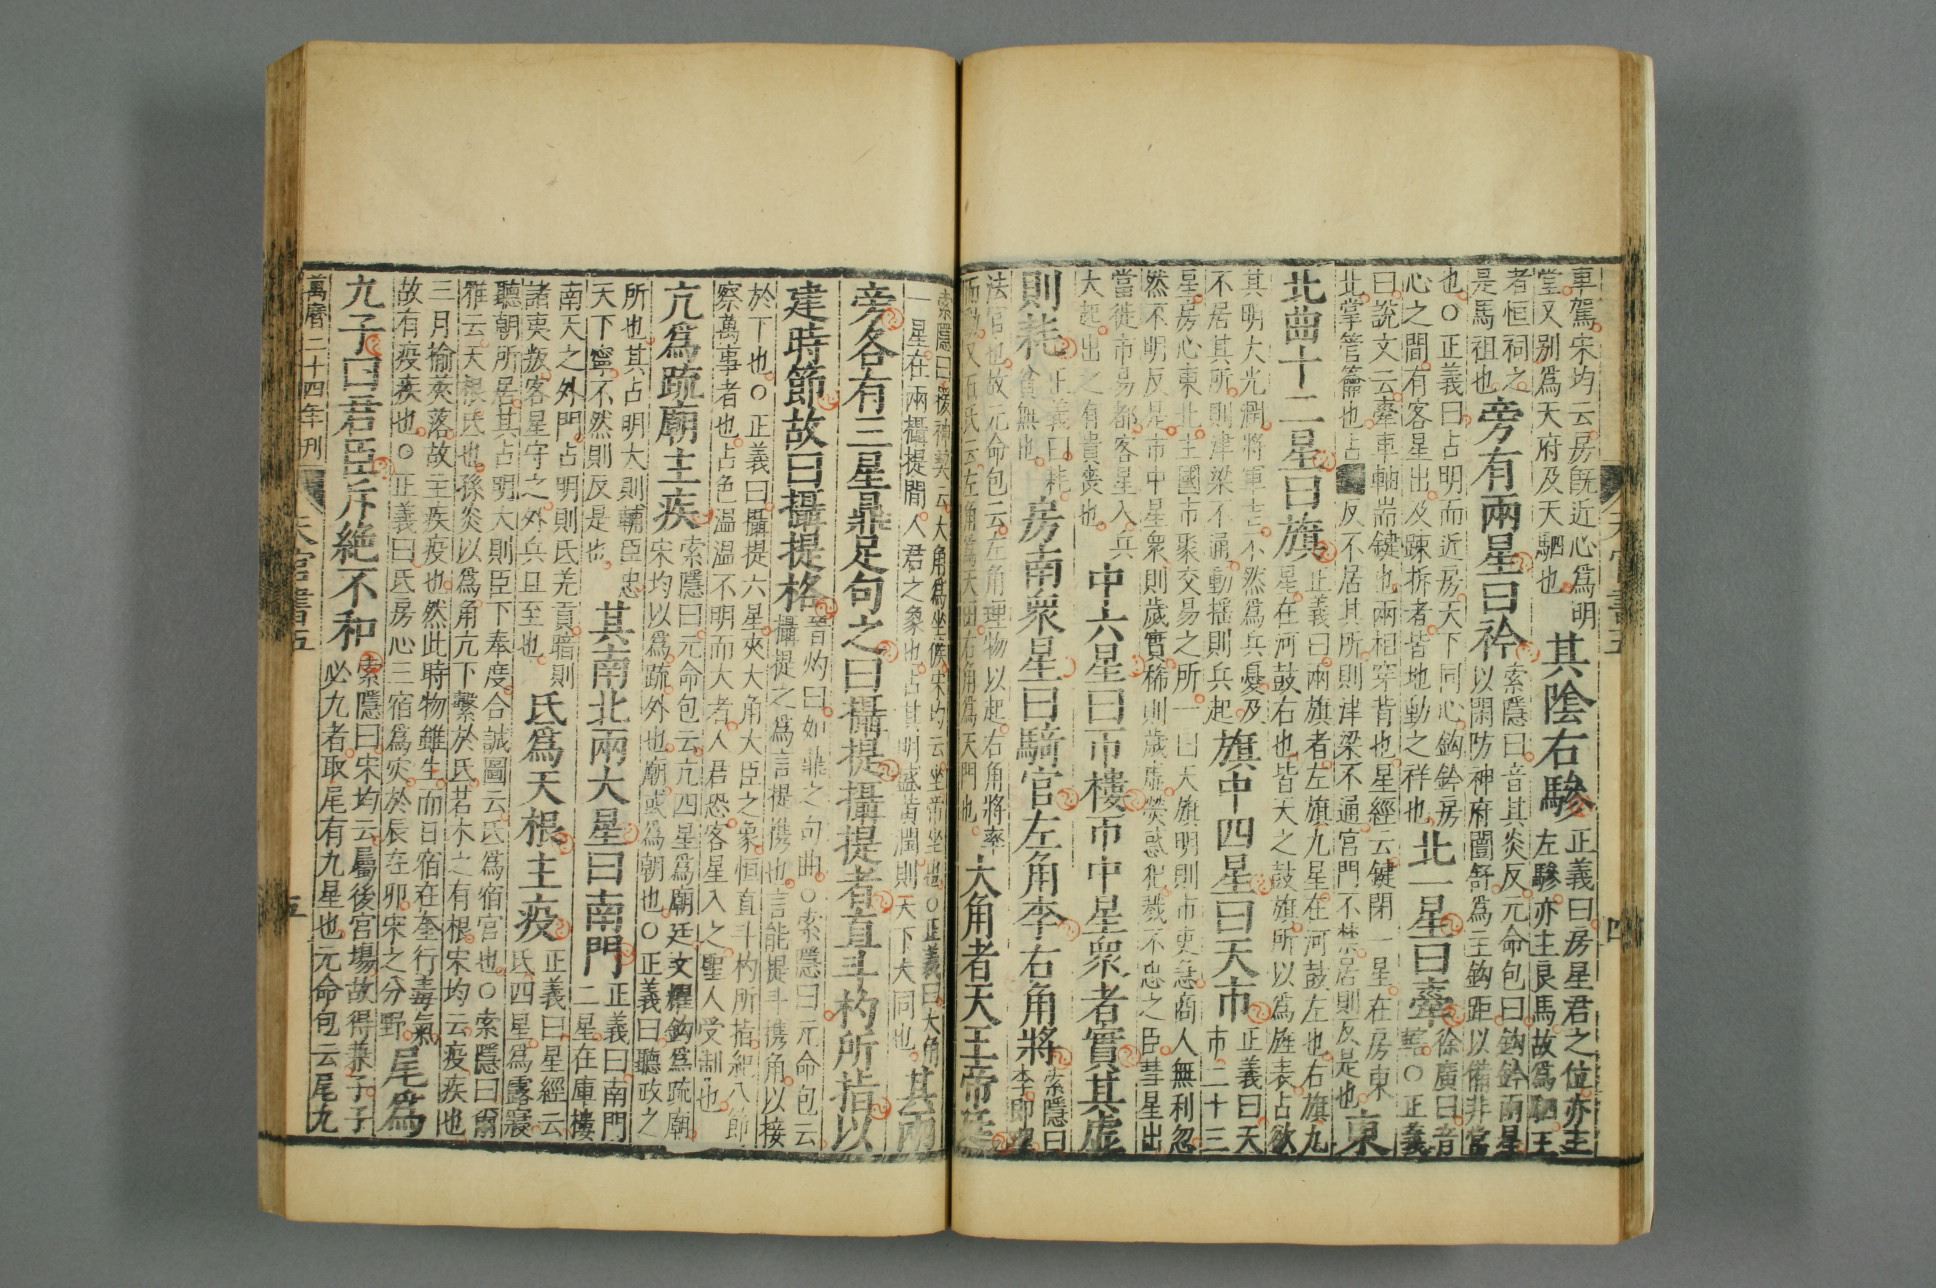 車駕宋均云房既近心爲明
堂又别爲天府及天駟也
其陰右驂
正義曰房星君之位亦主
左驂亦主良馬故爲駟王
者恒祠之
是馬祖也
旁有兩星曰衿
索隱曰音其炎反元命包曰鈎鈐兩星
以閑防神府闓舒爲主鈎距以備非常
也○正義曰占明而近房天下同心鈎鈐房
心之間有客星出及踈拆者皆地動之祥也
北一星曰舝
徐廣曰音
轄○正義
曰說文云舝車軸耑鍵也兩相穿背也星經云鍵閉一星在房東
北掌管籥也占 反不居其所則津梁不通宮門不禁居則反是也
東
北曲十二星曰旗
正義曰兩旗者左旗九星在河鼓左也右旗九
星在河鼓右也皆天之鼓旗所以爲旌表占欲
其明大光潤將軍吉不然爲兵憂及
不居其所則津梁不通動摇則兵起
旗中四星曰天市
正義曰天
市二十三
星房心東北主國市聚交易之所一曰天旗明則市吏急商人無利忽
然不明反是市中星衆則歲實稀則歲虛熒惑犯戮不忠之臣彗星出
當徙市易都客星入兵
大起出之有貴喪也
中六星曰市樓市中星衆者實其虛
則耗
正義曰耗
貧無也
房南衆星曰騎官左角李右角將
索隱曰
李即理
法官也故元命包云左角理物以起右角將率
而動又石氏云左角爲天田右角爲天門也
大角者天王帝廷
天官書五
四
索隱曰援神契云大角爲坐候宋均云坐帝坐也○正義曰大角
一星在兩攝提間人君之象也占其明盛黃潤則天下大同也
其兩
旁各有三星鼎足句之曰攝提攝提者直斗杓所指以
建時節故曰攝提格
晉灼曰如鼎之句曲○索隱曰元命包云
攝提之爲言提攜也言能提斗攜角以接
於下也○正義曰攝提六星夾大角大臣之象恒直斗杓所指紀八節
察萬事者也占色温温不明而大者人君恐客星入之聖人受制也
亢爲疏廟主疾
索隱曰元命包云亢四星爲廟廷文耀鈎爲疏廟
宋均以爲疏外也廟或爲朝也○正義曰聽政之
所也其占明大則輔臣忠
天下寧不然則反是也
其南北兩大星曰南門
正義曰南門
二星在庫樓
南天之外門占明則氐羌貢暗則
諸夷叛客星守之外兵且至也
氐爲天根主疫
正義曰星經云
氐四星爲露寢
聽朝所居其占明大則臣下奉度合誠圖云氐爲宿宮也○索隱曰爾
雅云天根氐也孫炎以爲角亢下繫於氐若木之有根宋均云疫疾也
三月榆莢落故主疾疫也然此時物雖生而日宿在奎行毒氣
故有疫疾也○正義曰氐房心三宿爲灾於辰在卯宋之分野
尾爲
九子曰君臣斥絶不和
索隱曰宋均云屬後宮場故得兼子子
必九者取尾有九星也元命包云尾九
萬曆二十四年刊
天官書五
五